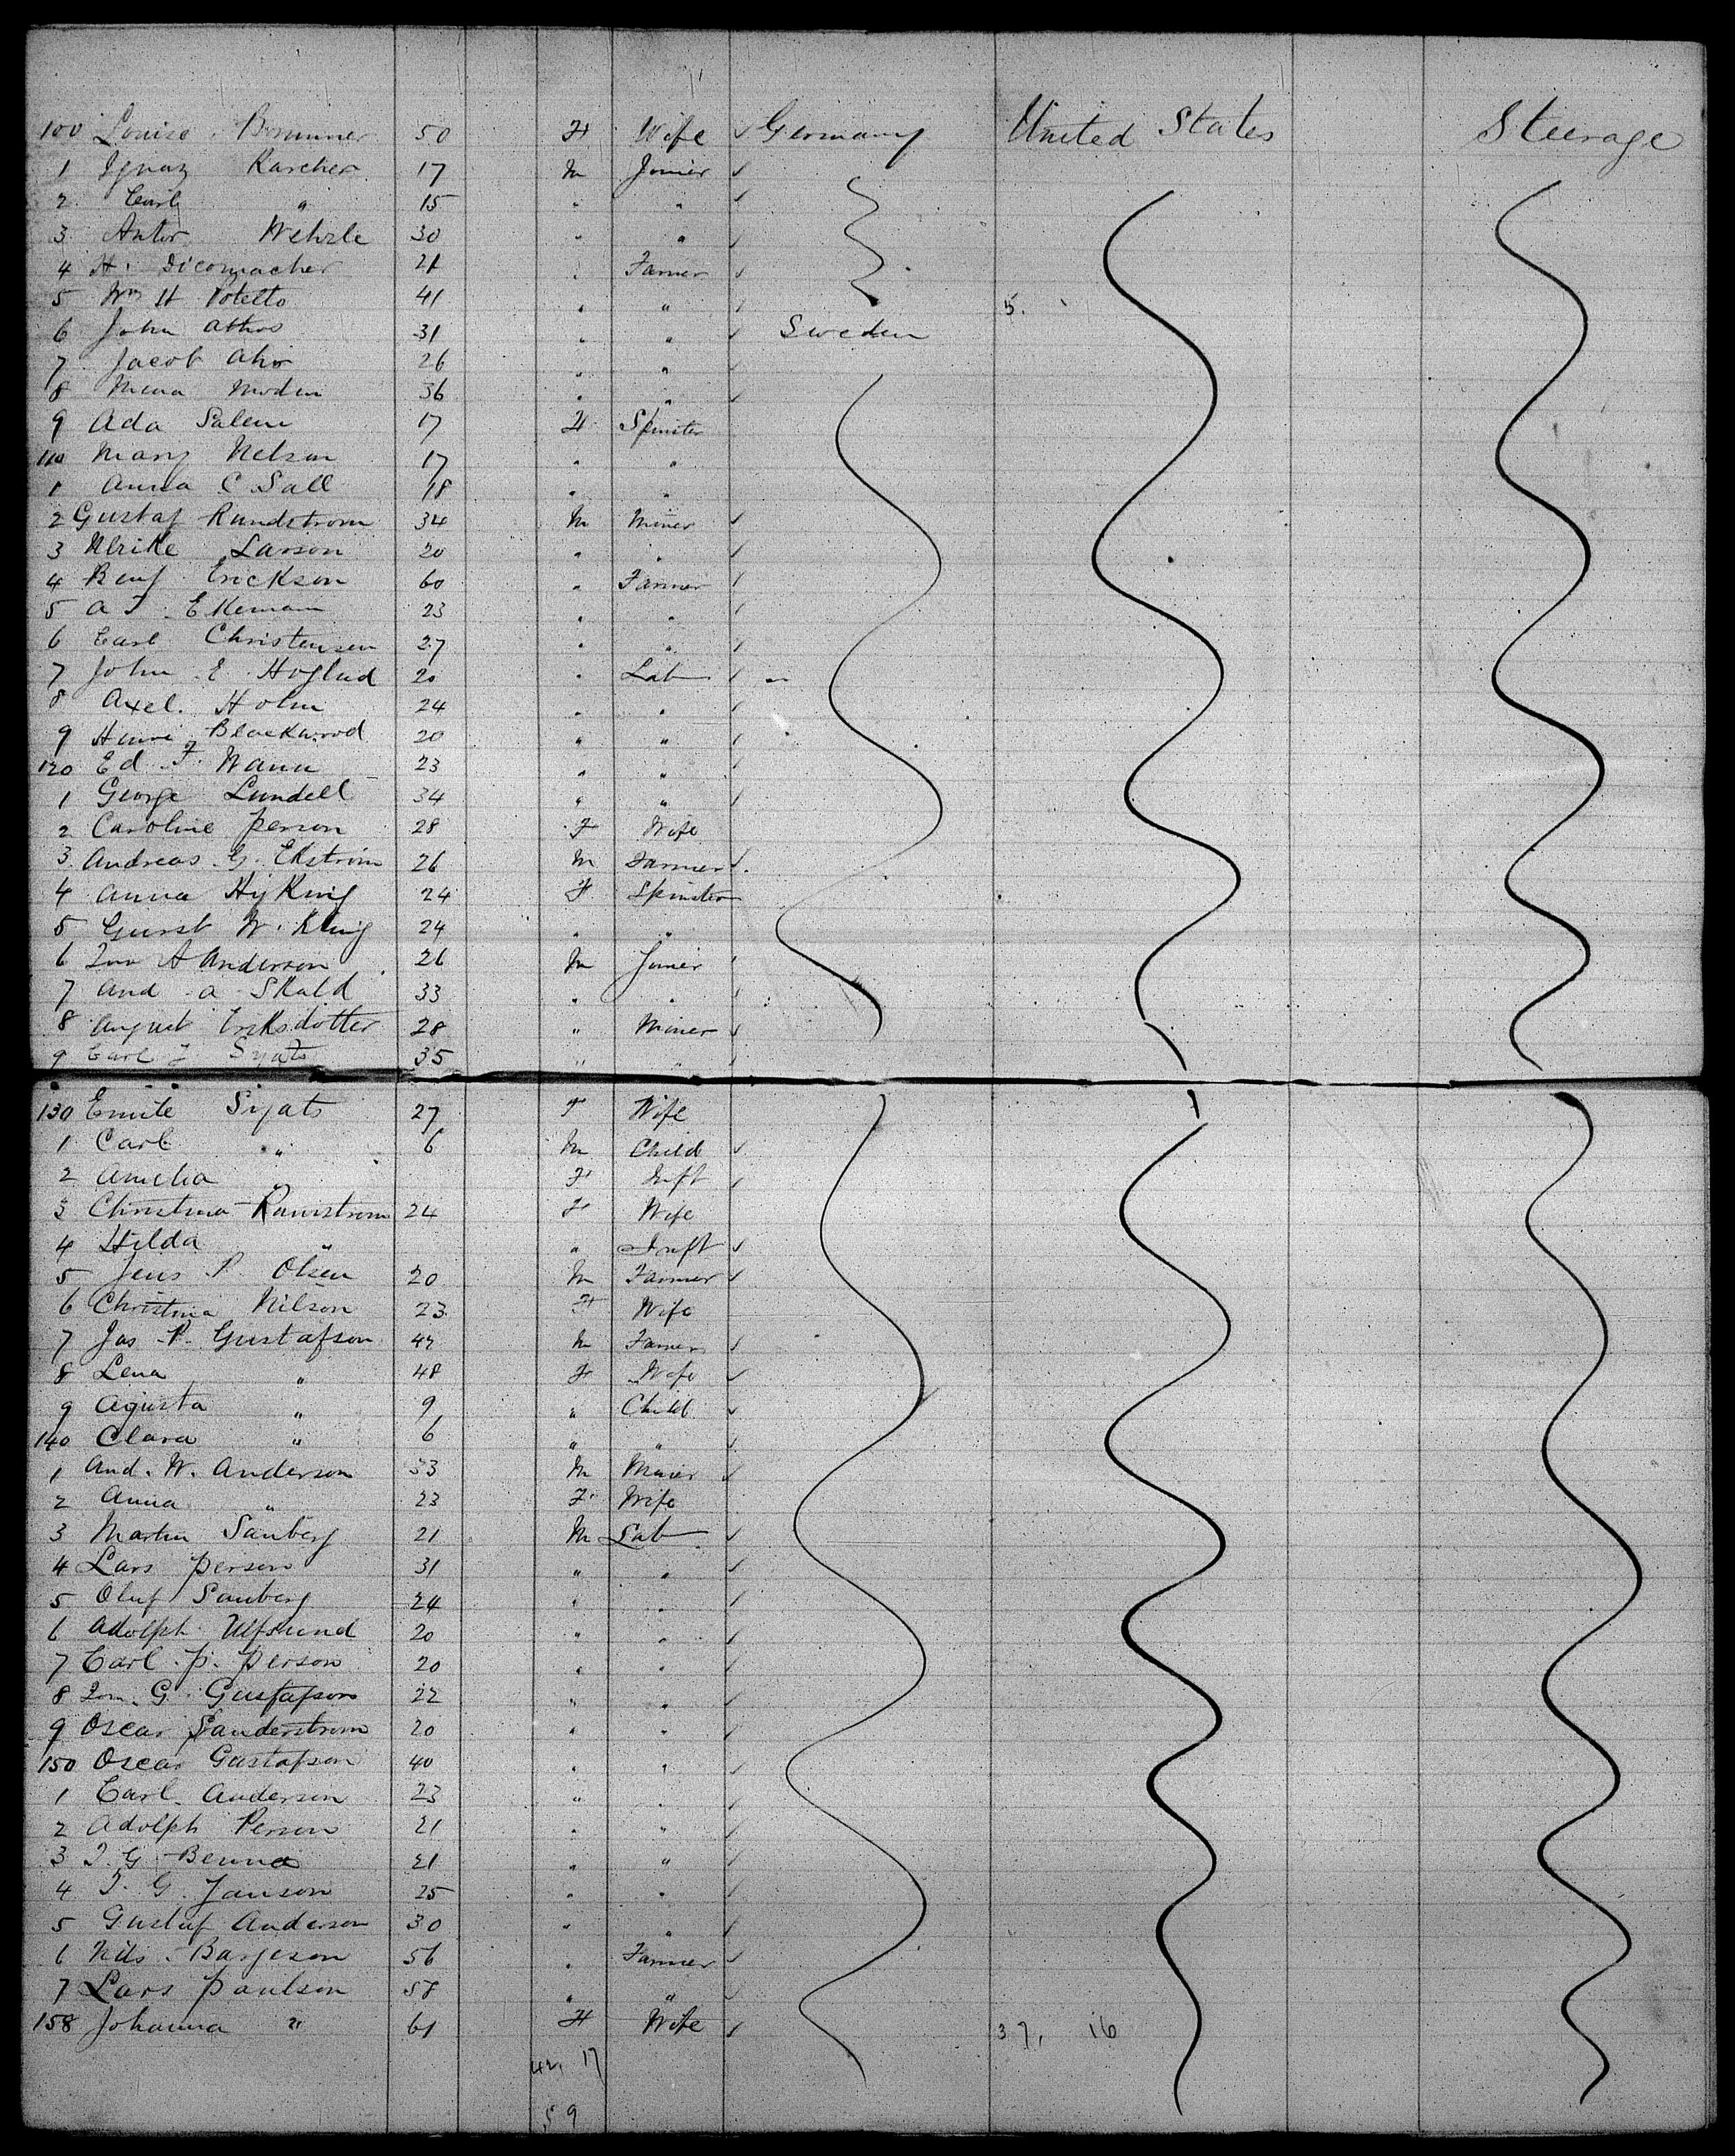 100 Louise Brunner 50 F Wife ✓ Germany United States Steerage
1 Ignaz Karcher 17 M Joiner ✓
2 Carl " 15 " " ✓
3 Anton Wehrle 30 " " ✓
4 H. Dicomacher 21 " Farmer ✓
5 Wm H 41 " " ✓ 5.
6 John 31 " " ✓ Sweden
7 Jacob 26 " " ✓
8 Mena Modin 36 " " ✓
9 Ada Salem 17 F Spinster
110 Mary Nelson 17 " "
1 Anna C. Sall 18 " "
2 Gustaf Rundstrom 34 M Miner ✓
3 Ulrike Larson 20 " " ✓
4 Benj Erickson 60 " Farmer ✓
5 A. Ekeman 23 " " ✓
6 Carl Christensen 27 " " ✓
7 John E. Hoglud 20 " Lab ✓ "
8 Axel Holm 24 " " ✓
9 Blackwood 20 " " ✓
120 Ed. F. Wann 23 " " ✓
1 George Lundell 34 " " ✓
2 Caroline Person 28 F Wife
3 Andreas G. Ekstrim 26 M Farmer ✓
4 Anna 24 F Spinster
5 W. 24 " "
6 A Anderson 26 M Joiner ✓
7 And a Skald 33 " " ✓
8 August Eriksdotter 28 " Miner ✓
9 Carl J Syats 35 " " ✓
130 Emile Syats 27 F Wife
1 Carl " 6 M Child ✓
2 Amelia " F Inft ✓
3 Christina 24 F Wife
4 Hilda " " Inft ✓
5 Jens P. Olsen 20 M Farmer ✓
6 Christina Nilson 23 F Wife
7 Jas P. Gustafson 42 M Farmer ✓
8 Lena " 48 F Wife ✓
9 Agusta " 9 " Child ✓
140 Clara " 6 " " ✓
1 And. W. Anderson 33 M Miner ✓
2 Anna " 23 F Wife
3 Martin Sanberg 21 M Lab ✓
4 Lars Person 31 " " ✓
5 Oluf Sanberg 24 " " ✓
6 Adolph Ulfsund 20 " " ✓
7 Carl P. Person 20 " " ✓
8 G. Gustafson 22 " " ✓
9 Oscar Sanderstrom 20 " " ✓
150 Oscar Gustafson 40 " " ✓
1 Carl Anderson 23 " " ✓
2 Adolph Person 21 " " ✓
3 J. G. 21 " " ✓
4 J. G. Janson 25 " " ✓
5 Gustaf Anderson 30 " " ✓
6 Nils Barjeson 56 " Farmer ✓
7 Lars Paulson 58 " " ✓
158 Johanna " 61 F Wife ✓ 37, 16
42 17
59